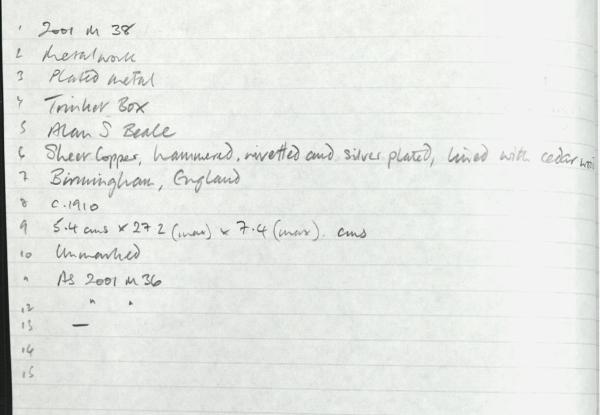 1 2001 M 38
2 Metalwork
3 Plated metal
4 Trinket Box
5 Alan S Beale
6 Sheet Copper, hammered, rivetted and silver plated, lined with cedar
7 Birmingham, England
8 c.1910
9 5.4 cms x 27.2 (max) x 7.4 (max). cms
10 Unmarked
11 As 2001 M 36
12 " "
13 —
14
15